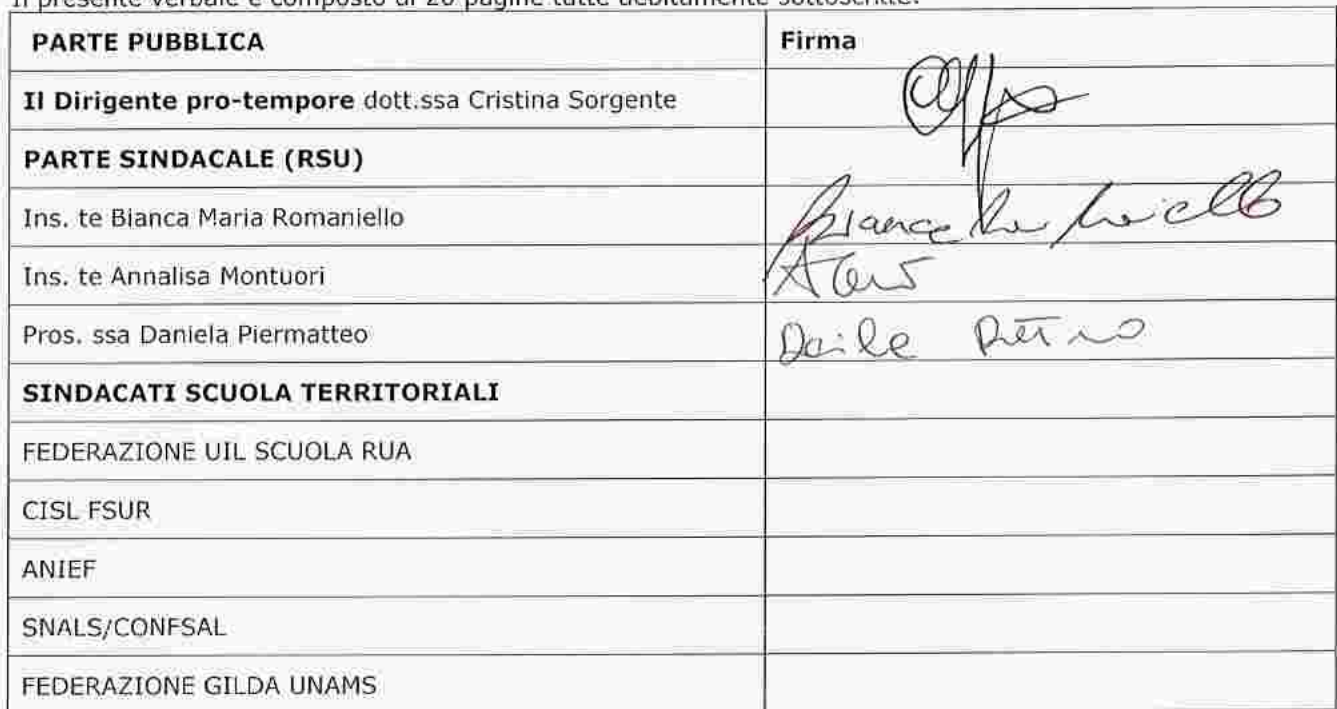 Il presente verbale è composto di 20 pagine tutte debitamente sottoscritte.
PARTE PUBBLICA Firma
Il Dirigente pro-tempore dott.ssa Cristina Sorgente
PARTE SINDACALE (RSU)
Ins. te Bianca Maria Romaniello Bianca
Ins. te Annalisa Montuori
Pros. ssa Daniela Piermatteo
SINDACATI SCUOLA TERRITORIALI
FEDERAZIONE UIL SCUOLA RUA
CISL FSUR
ANIEF
SNALS/CONFSAL
FEDERAZIONE GILDA UNAMS